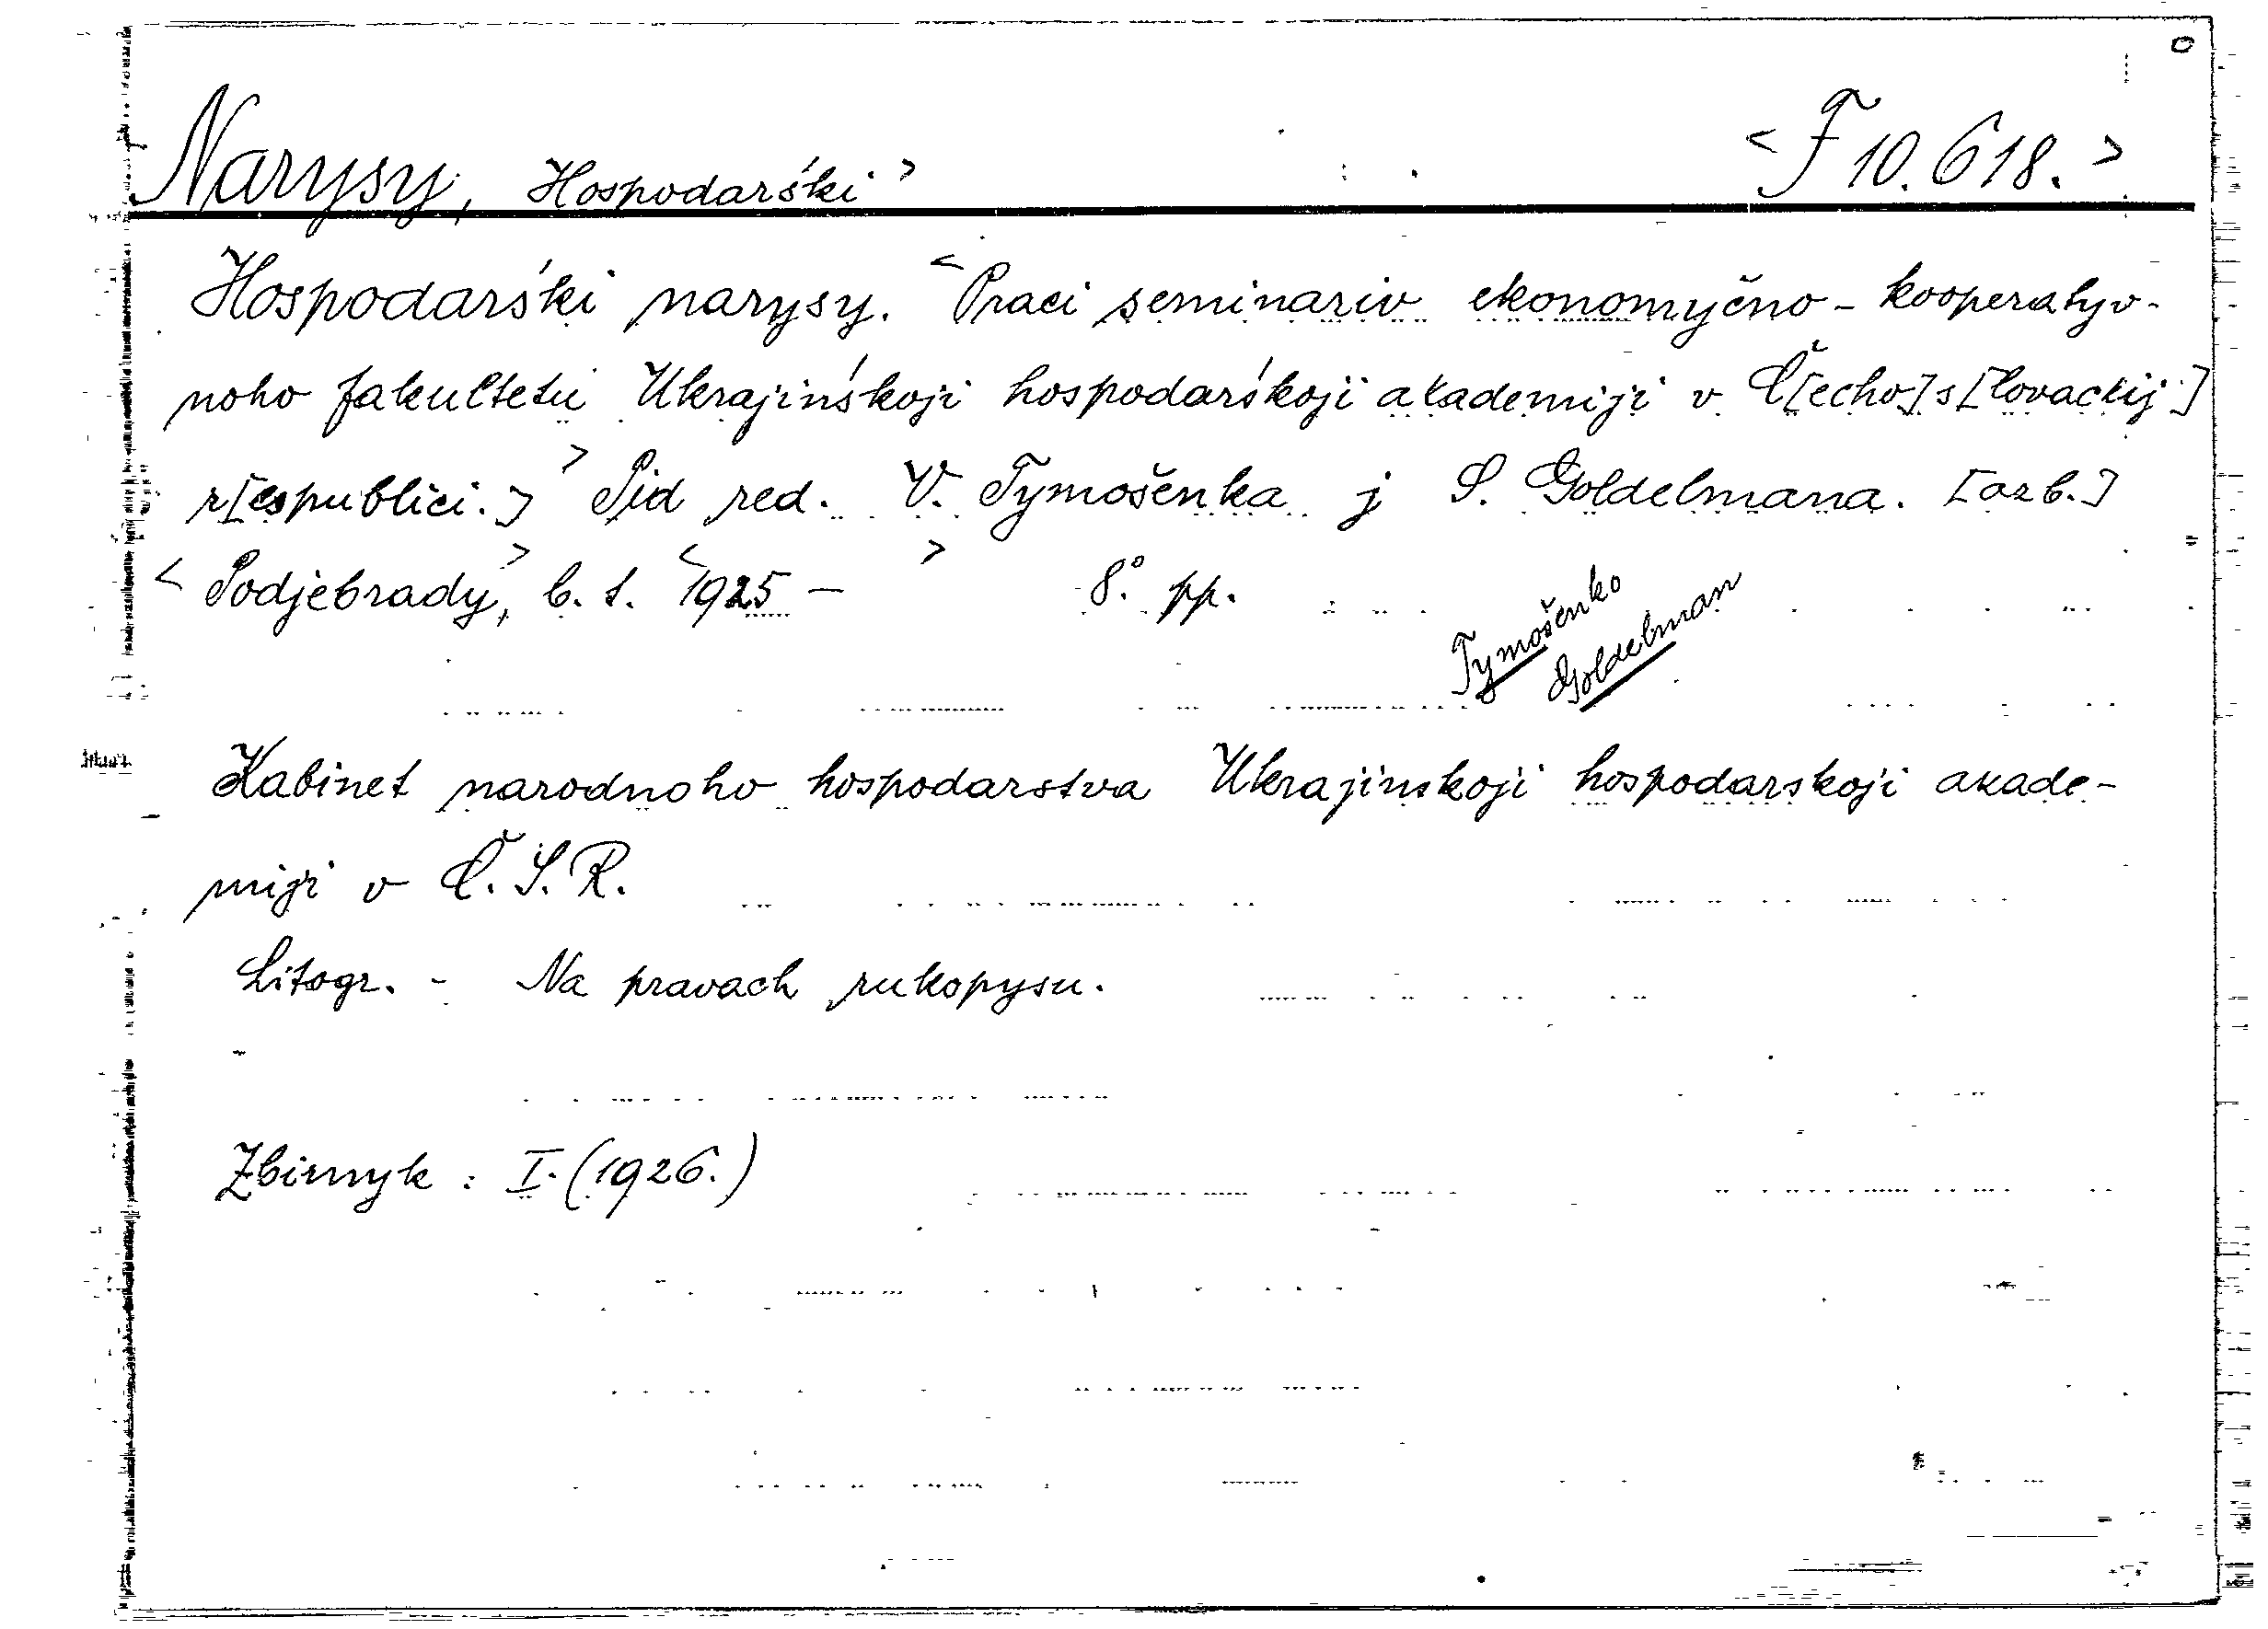 Narysy, Hospodarśki > <F 10.618.>
Hospodarśki narysy. <Praci seminariv ekonomyčno-kooperatyv-
noho fakultetu Ukrajinśkoji hospodarśkoji akademiji v Č[echo]s[lovackij]
r[espublici.]> Pid red. V. Tymošenka j S. Goldelmana. [azb.]
<Podjebrady,> b. t. <1925 — > 8° pp.
Tymošenko
Goldelman
Kabinet narodnoho hospodarstva Ukrajinskoji hospodarskoji akade-
miji v Č.S.R.
Litogr. - Na pravach rukopysu.
Zbirnyk: I. (1926.)